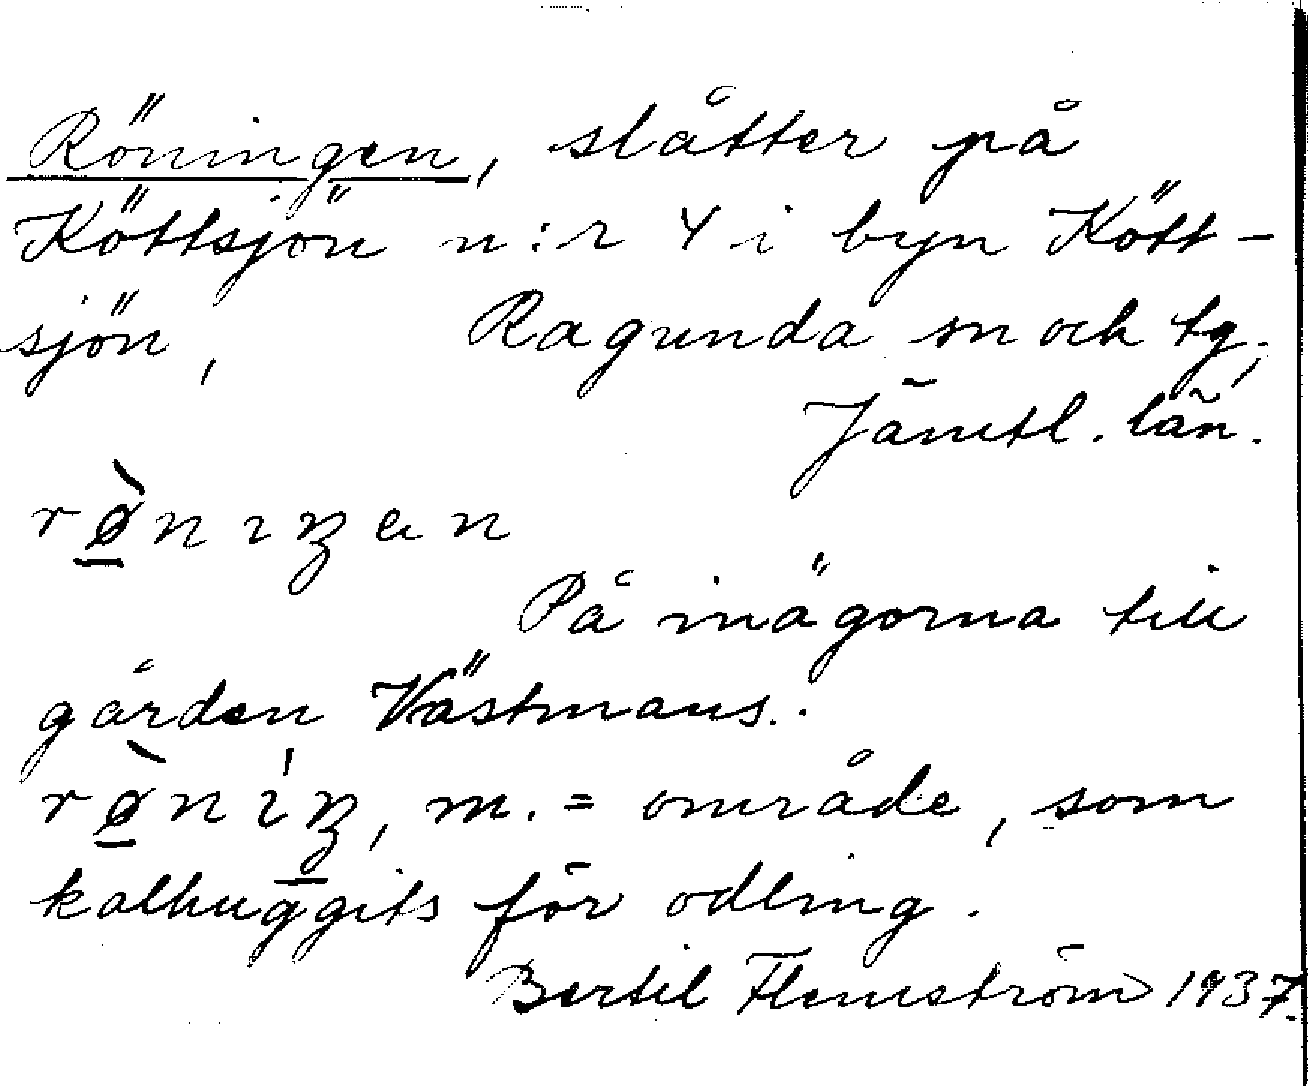 Röningen, slåtter på
Köttsjön n:r 4 i byn Kött-
sjön, Ragunda sn och tg,
Jämtl. län.
rø̀nıŋan
På inägorna till
gården Västmans.
rø̀nı́ŋ, m. = område, som
kalhuggits för odling.
Bertil Flemström 1937.